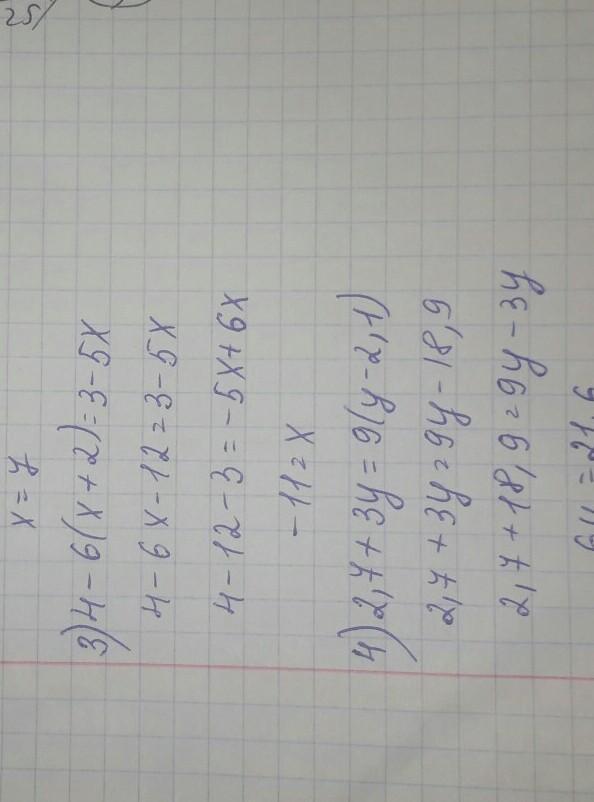 25)
x = 7
3) 4 - 6(x + 2) = 3 - 5x
4 - 6x - 12 = 3 - 5x
4 - 12 - 3 = - 5x + 6x
- 11 = x
4) 2,7 + 3y = 9(y - 2,1)
2,7 + 3y = 9y - 18,9
2,7 + 18,9 = 9y - 3y
6y = 21,6